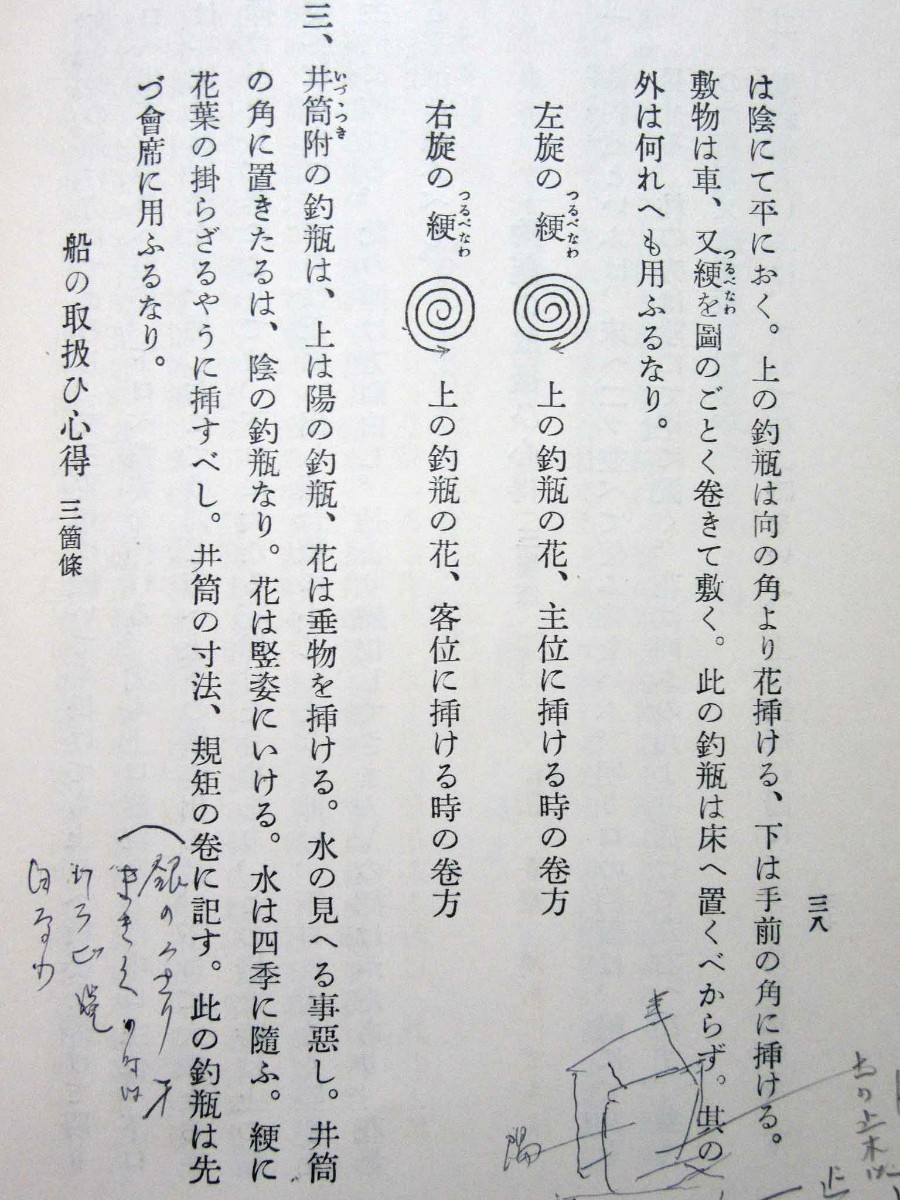 は陰にて平におく。上の釣瓶は向の角より花揷ける、下は手前の角に揷ける。
敷物は車、又綆を圖のごとく巻きて敷く。此の釣瓶は床へ置くべからず。其の
つるべなわ
外は何れへも用ふるなり。
左旋の綆 上の釣瓶の花、主位に揷ける時の巻方
つるべなわ
右旋の綆 上の釣瓶の花、客位に揷ける時の巻方
つるべなわ
三、井筒附の釣瓶は、上は陽の釣瓶、花は垂物を揷ける。水の見へる事惡し。井筒
いづゝつき
の角に置きたるは、陰の釣瓶なり。花は竪姿にいける。水は四季に隨ふ。綆に
花葉の掛らざるやうに揷すべし。井筒の寸法、規矩の巻に記す。此の釣瓶は先
づ會席に用ふるなり。
船の取扱ひ心得 三箇條
三八
陽